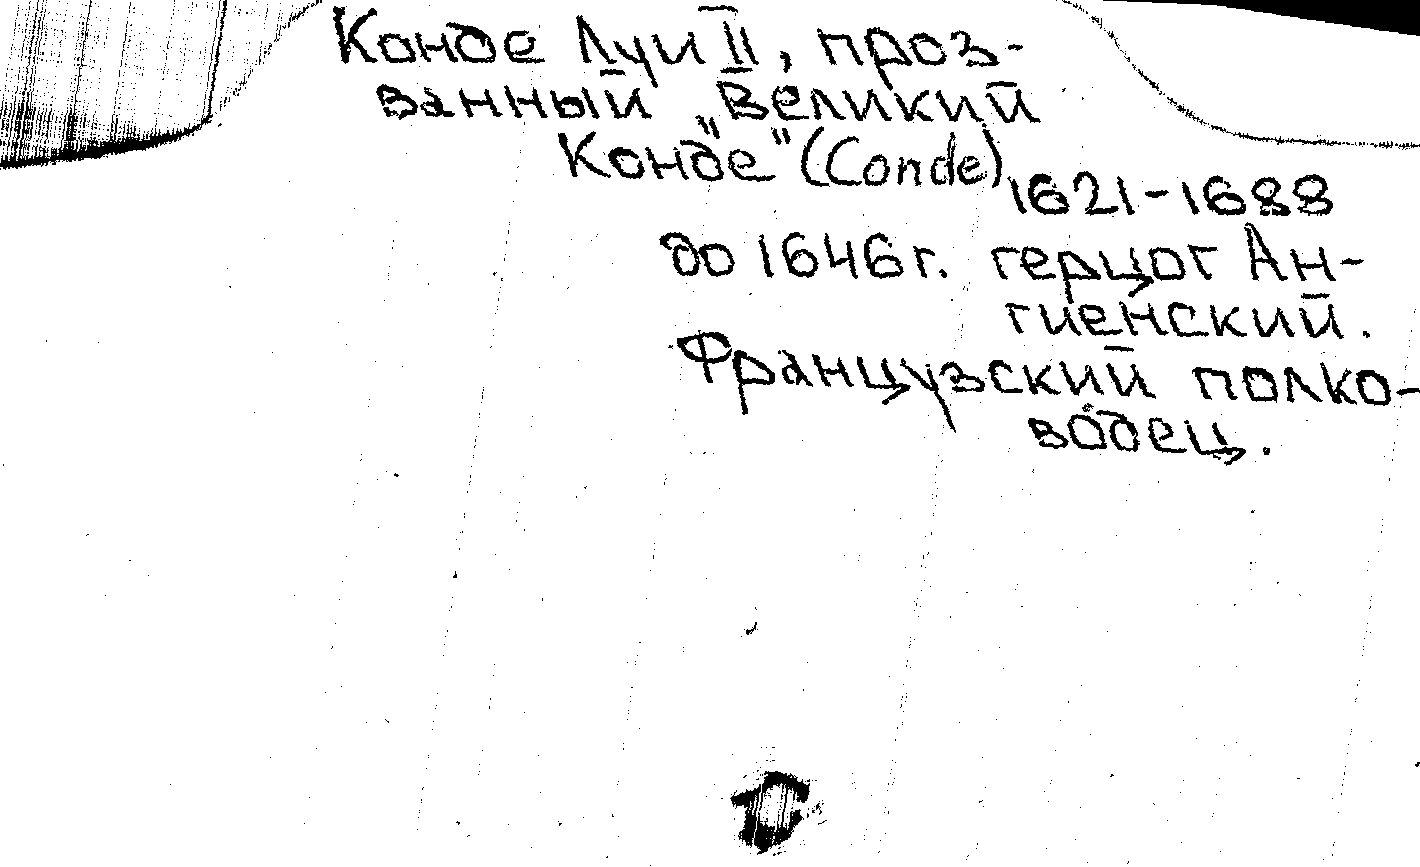 Конде Луи II, проз-
ванный "Великий
Конде" (Conde)
1621-1688
до 1646 г. герцог Ан-
гиенский.
Французский полко-
водец.